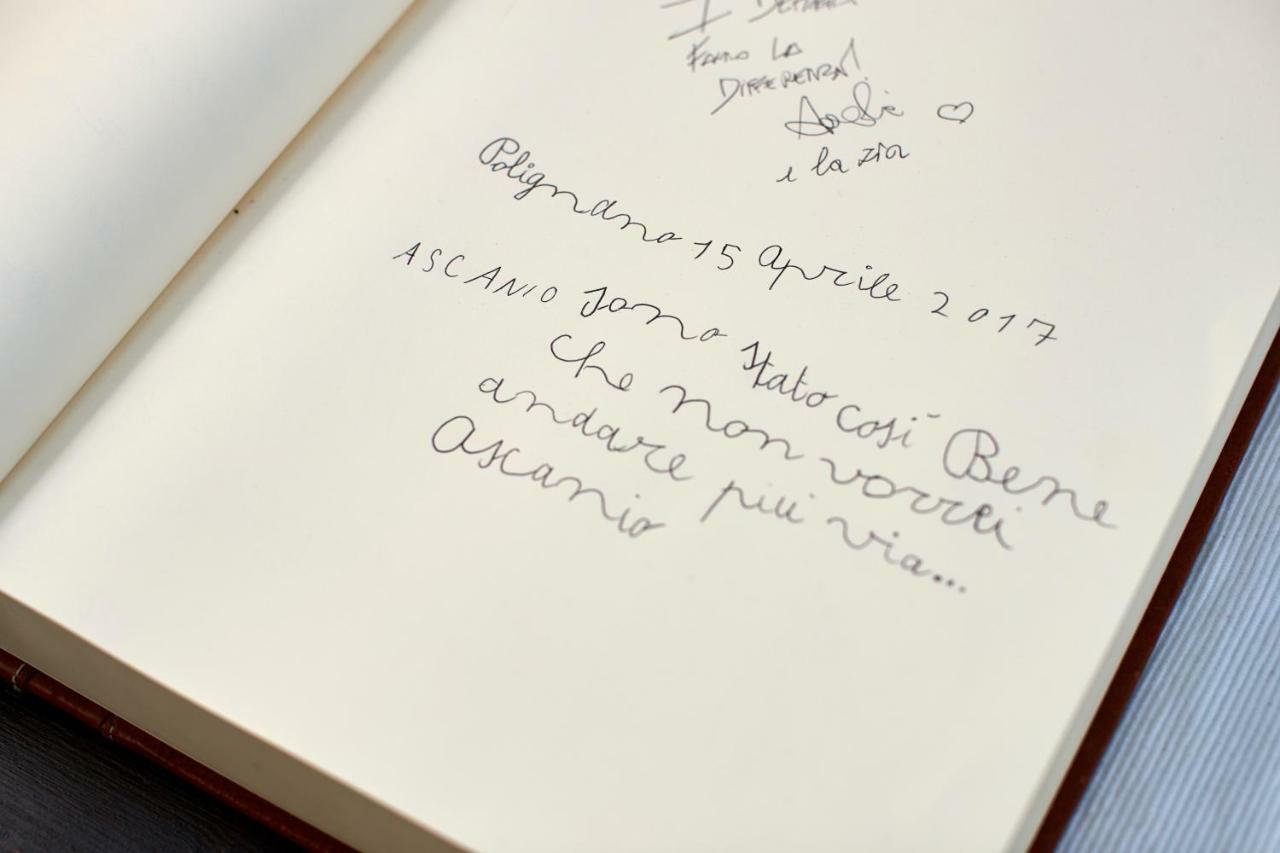 I DETTAGLI
FANNO LA
DIFFERENZA!
e la zia
Polignano 15 Aprile 2017
ASCANIO Sono Stato così Bene
che non vorrei
andare più via...
Ascanio